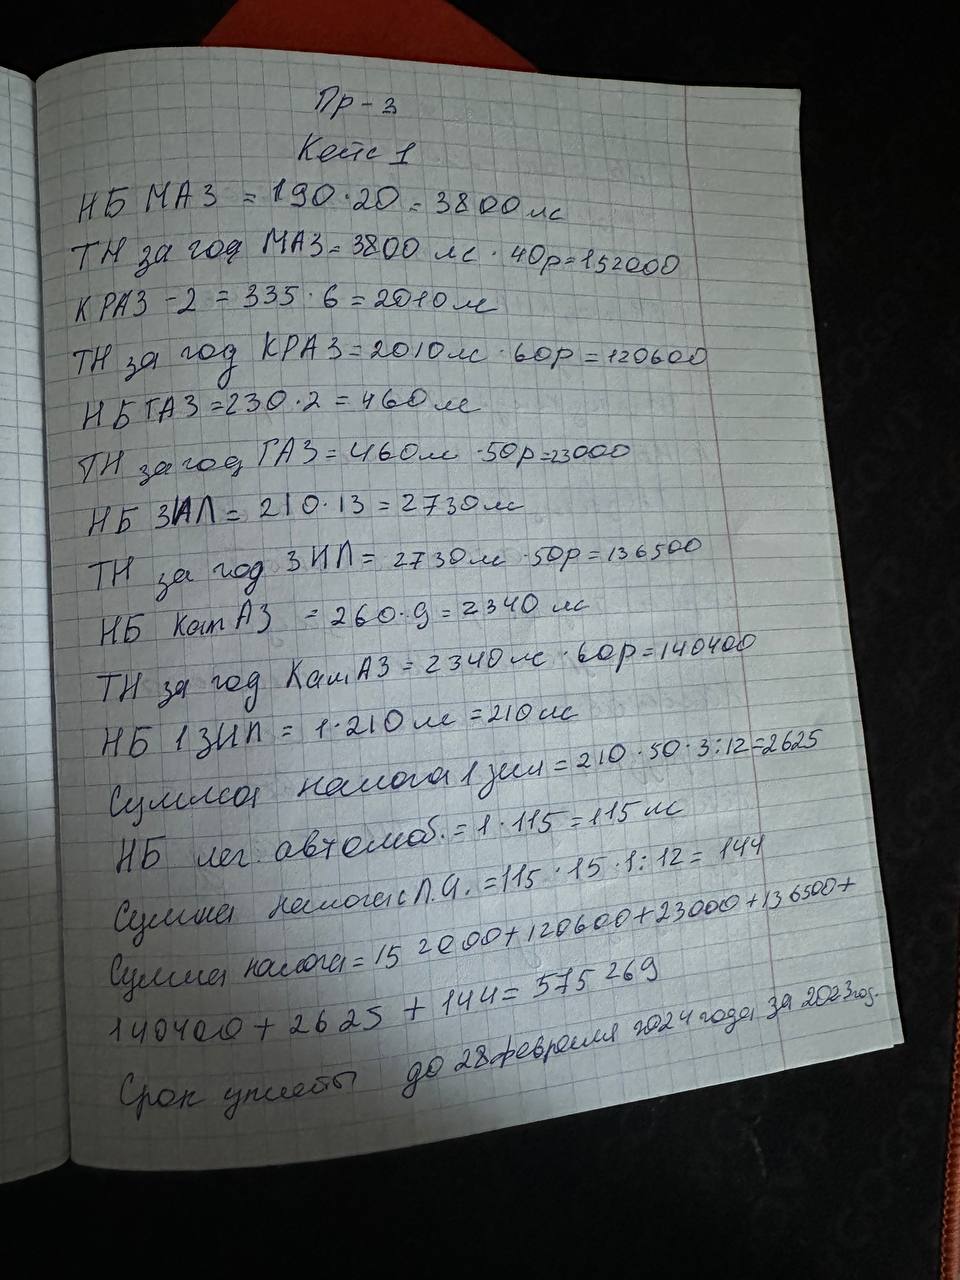 Пр-3
Кейс 1
НБ МАЗ = 190·20 = 3800 лс
ТН за год МАЗ = 3800 лс · 40р = 152000
КРАЗ-2 = 335·6 = 2010 лс
ТН за год КРАЗ = 2010 лс · 60р = 120600
НБ ГАЗ = 230·2 = 460 лс
ТН за год ГАЗ = 460 лс · 50р = 23000
НБ ЗИЛ = 210·13 = 2730 лс
ТН за год ЗИЛ = 2730 лс · 50р = 136500
НБ КамАЗ = 260·9 = 2340 лс
ТН за год КамАЗ = 2340 лс · 60р = 140400
НБ 1 ЗИЛ = 1·210 лс = 210 лс
Сумма налога 1 зил = 210·50·3:12 = 2625
НБ лег. автомоб. = 1·115 = 115 лс
Сумма налога с Л.А. = 115·15·1:12 = 144
Сумма налога = 152000+120600+23000+136500+
140400 + 2625 + 144 = 575269
Срок уплаты до 28 февраля 2024 года за 2023 год.